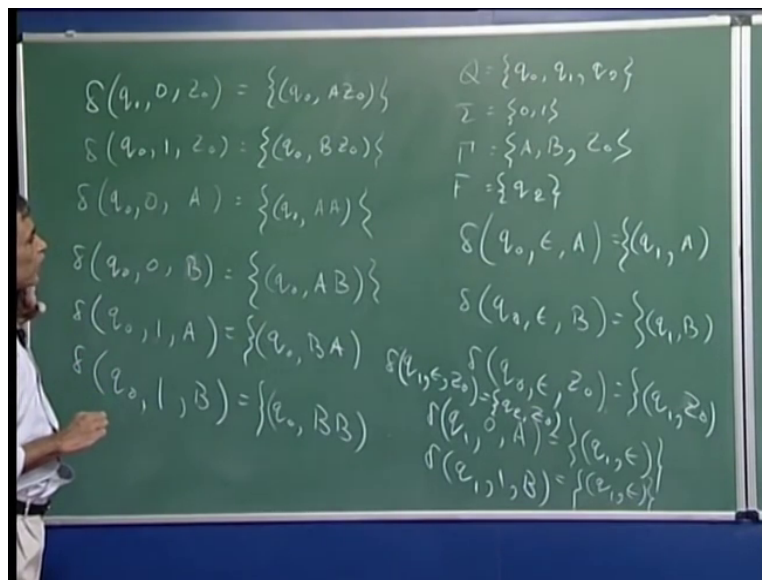 δ(q₀, 0, Z₀) = {(q₀, AZ₀)}
δ(q₀, 1, Z₀) = {(q₀, BZ₀)}
δ(q₀, 0, A) = {(q₀, AA)}
δ(q₀, 0, B) = {(q₀, AB)}
δ(q₀, 1, A) = {(q₀, BA)
δ(q₀, 1, B) = {(q₀, BB)
Q = {q₀, q₁, q₂}
Σ = {0,1}
Γ = {A, B, Z₀}
F = {q₂}
δ(q₀, ϵ, A) = {(q₁, A)
δ(q₀, ϵ, B) = {(q₁, B)
δ(q₀, ϵ, Z₀) = {(q₁, Z₀)
δ(q₁, ϵ, Z₀) = {q₂, Z₀)
δ(q₁, 0, A) = {(q₁, ϵ)}
δ(q₁, 1, B) = {(q₁, ϵ)}